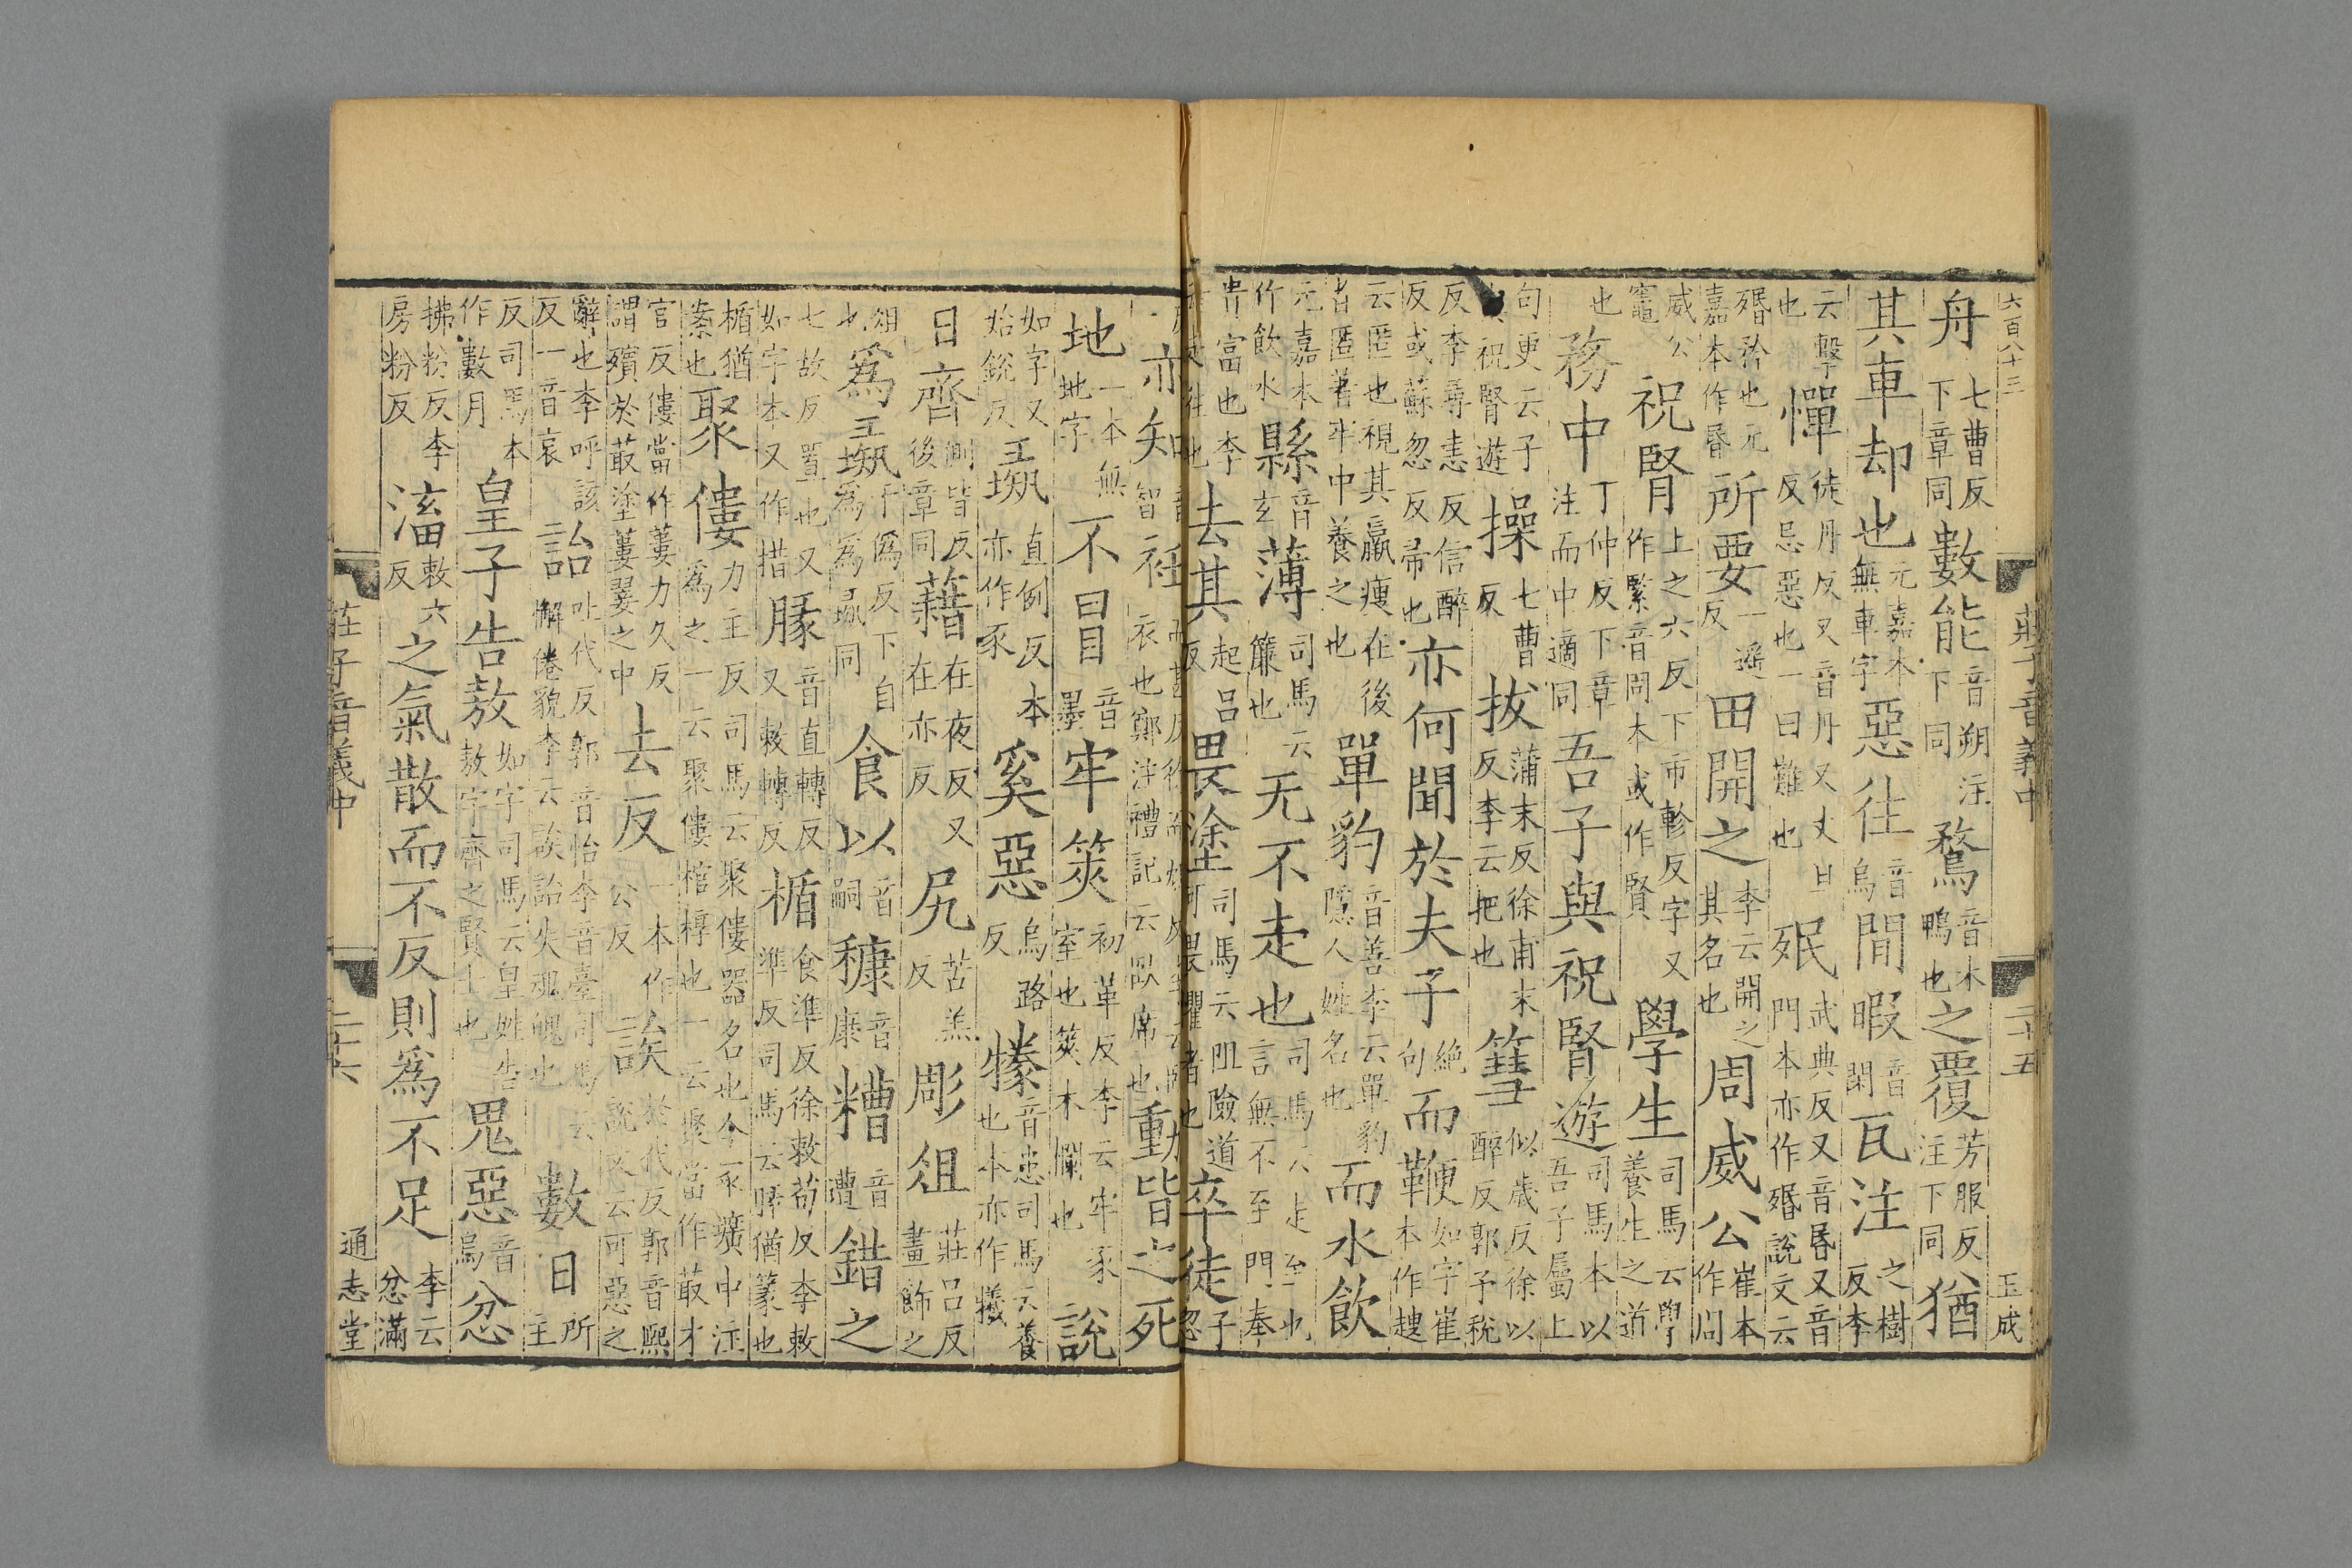 六百八十三　莊子音義中　二十五　玉成
舟七曹反下章同數能音朔注下同鶩音木鴨也之覆芳服反注下同猶
其車却也元嘉本無車字惡往音烏間暇音閑瓦注之樹反李
云擊也憚徒丹反又音丹又丈旦反忌惡也一曰難也殙武典反又音昬又音門本亦作㛰說文云
殙矜也元嘉本作昬所要一遥反田開之李云開之其名也周威公崔本作周
威公竈祝腎上之六反下市軫反字又作緊音同本或作賢學生司馬云學養生之道
也務中丁仲反下章注而中適同吾子與祝腎遊司馬本以吾子屬上
句更云子與祝腎遊操七曹反拔蒲末反徐甫末反李云把也篲似歲反徐以醉反郭予稅
反李尋恚反信醉反或蘇忽反帚也亦何聞於夫子絶句而鞭如字崔本作𧼯
云匿也視其羸瘦在後者匿著牢中養之也單豹音善李云單豹隱人姓名也而水飲
元嘉本作飲水縣音玄薄司馬云簾也无不走也司馬云走至也言無不至門奉
富也李云走往也去其起呂反畏塗司馬云阻險道可畏懼者也卒徒子忽
亦知音智衽衣也鄭注禮記云臥席也動皆之死
地一本無地字不冒音墨牢筴初革反李云牢豕室也筴木欄也說
如字又始銳反彘直例反本亦作豕奚惡烏路反㹖音患司馬云養也本亦作犧
日齊側皆反後章同藉在夜反又在亦反尻苦羔反彫俎莊呂反畫飾之
俎也爲彘于僞反下自爲爲彘同食以音嗣穅音康糟音遭錯之
七故反置也又如字本又作措腞音直轉反又敕轉反楯食準反徐敕荀反李敕準反司馬云腞猶篆也
楯猶案也聚僂力主反司馬云聚僂器名也今冢壙中注爲之一云聚僂棺槨也一云聚當作菆才
官反僂當作蔞力久反謂殯於菆塗蔞翣之中去反一本作公反誒於代反郭音熙說文云可惡之
辭也李呼該反一音哀詒吐代反郭音怡李音臺司馬云懈倦貌李云誒詒失魂魄也數日所主
反司馬本作數月皇子告敖如字司馬云皇姓告敖字齊之賢士也鬼惡音烏忿
拂粉反李房粉反滀敕六反之氣散而不反則爲不足李云忿滿
莊子音義中　二十六　通志堂